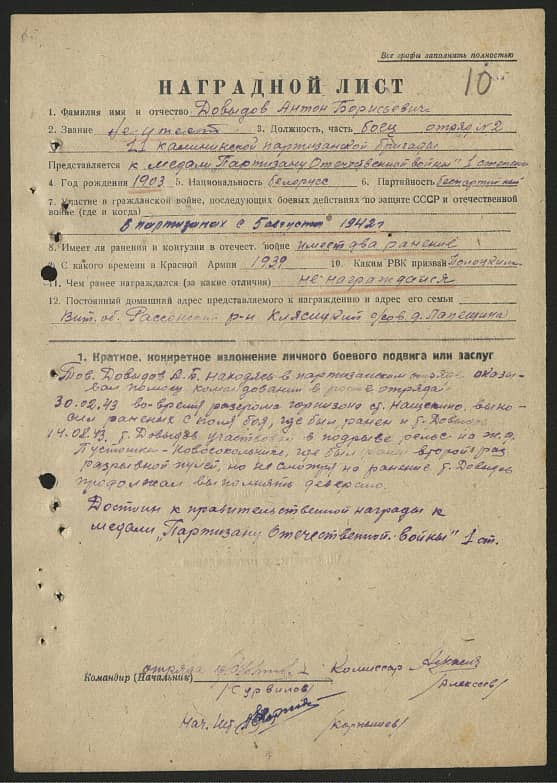 Все графы заполнять полностью
10
НАГРАДНОЙ ЛИСТ
1. Фамилия имя и отчество Довыдов Антон Борисьевич
2. Звание не имеет 3. Должность, часть боец отряд №2
11 калининской партизанской бригады
Представляется к медали Партизану Отечественной войны" 1 степени
4. Год рождения 1903 5. Национальность белорусс 6. Партийность беспартийный
7. Участие в гражданской войне, последующих боевых действиях по защите СССР и отечественной
войне (где и когда)
В партизанах с 5 августа 1942 г
8. Имеет ли ранения и контузии в отечест. войне имеет два ранение
9. С какого времени в Красной Армии 1939 10. Каким РВК призван
11. Чем ранее награждался (за какие отличия) не награждался
12. Постоянный домашний адрес представляемого к награждению и адрес его семьи
Вит. об. Рассонский р-н Клясицкий с/сов д.
1. Краткое, конкретное изложение личного боевого подвига или заслуг
Тов. Довыдов А.Б. находясь в партизанском отряде оказы-
вал помощь командованию в росте отряда
30.02.43 во-время разгрома горнизона ст. Нащекино, выно-
сил раненых с поля боя, где был ранен и т. Довыдов
14.08.43 т. Довыдов участвовал в подрыве рельс на ж.д.
Пустошка-Новосокольники, где был ранен второй раз
разрывной пулей, но не смотря на ранение т. Довыдов
продолжал выполнять диверсию.
Достоин к правительственной награды к
медали „Партизану Отечественной войны" 1 ст.
отряда Комиссар
Командир (Начальник)
(Сурвилов) (Алексеев)
Нач. Шт. (Корнышев)